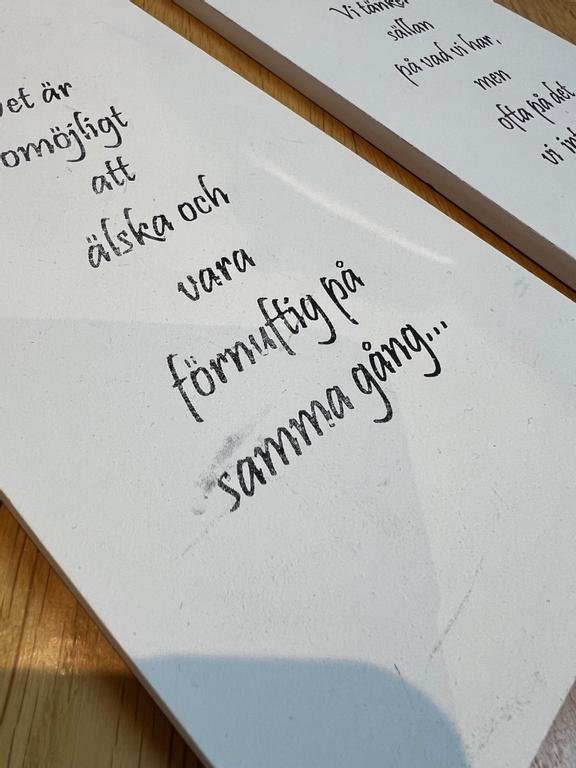 är
omöjligt
att
älska och
vara
förnuftig på
samma gång...
Vi tänker
sällan
på vad vi har,
men
ofta på det
vi